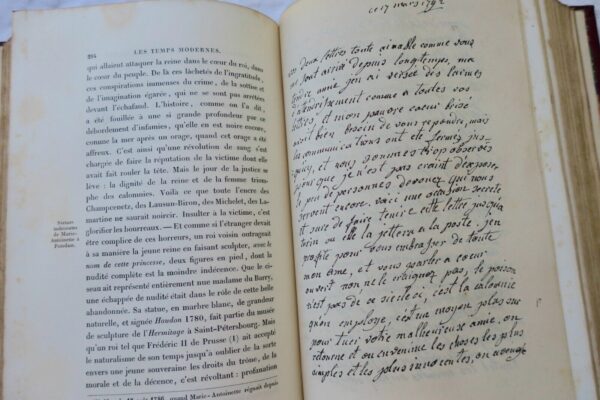 294
LES TEMPS MODERNES.
qui allaient attaquer la reine dans le cœur du roi, dans
le cœur du peuple. De là ces lâchetés de l'ingratitude,
ces conspirations immenses du crime, de la sottise et
de l'imagination égarée, qui ne se sont pas arrêtées
devant l'échafaud. L'histoire, comme on l'a dit,
a été fouillée à une si grande profondeur par ce
débordement d'infamies, qu'elle en est noire encore,
comme la mer après un orage, quand cet orage a été
affreux. C'est ainsi qu'une révolution de sang s'est
chargée de faire la réputation de la victime dont elle
avait fait rouler la tête. Mais le jour de la justice se
lève : la dignité de la reine et de la femme triom-
phe des calomnies. Voilà ce que toute l'encre des
Champcenetz, des Lausun-Biron, des Michelet, des La-
martine ne saurait noircir. Insulter à la victime, c'est
glorifier les bourreaux. — Et comme si l'étranger devait
être complice de ces horreurs, un roi voisin outrageait
à sa manière la jeune reine en faisant sculpter, avec le
nom de cette princesse, deux figures en pied, dont la
nudité complète est la moindre indécence. Que le ci-
seau ait représenté entièrement nue madame du Barry,
une échappée de nudité était dans le rôle de cette belle
abandonnée. Sa statue, en marbre blanc, de grandeur
naturelle, et signée Houdon 1780, fait partie du musée
de sculpture de l'Hermitage à Saint-Pétersbourg. Mais
qu'un roi tel que Frédéric II de Prusse (1) ait accepté
le naturalisme de son temps jusqu'à oublier de la sorte
envers une jeune souveraine les droits du trône, de la
morale et de la décence, c'est révoltant : profanation
Statues
indécentes
de Marie-
Antoinette à
Potsdam.
1786, quand Marie-Antoinette régnait depuis
ce 17 mars 1792
deux lettres toute aimable comme vous
sont arrivé depuis longtemps, ma
chère amie, j'en ai versée des larmes
d'attendrissement comme a toutes vos
lettres, et mon pauvre coeur brisé
aussi bien besoin de vous repondre, mais
les communications ont ete fermés jus-
quici, et nous sommes trop observés
pour que je n'est pas craint d'exposer
le peu de personnes devoués qui nous
servent encore. Voici une occasion secrete
et sure de faire tenir cette lettre jusqu'a
turin ou elle la jettera a la poste. j'en
profite pour vous embrasser de toute
mon ame, et vous parler a coeur
ouvert non, ne le craignez pas, le poison
n'est pas de ce siecle ci, c'est la calomnie
qu'on employe, c'est un moyen plus sur
pour tuer votre malheureuse amie. on
retourne et on envenime les choses les plus
simples et les plus innocentes, on aveugle